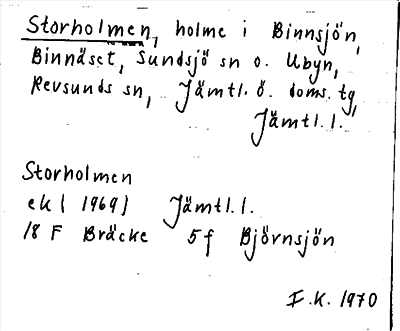 Storholmen, holme i Binnsjön,
Binnäset, Sundsjö sn o. Ubyn,
Revsunds sn, Jämtl. ö. doms. tg,
Jämtl. l.
Storholmen
ek ( 1969 ) Jämtl. l.
18 F Bräcke 5 f Björnsjön
I.K. 1970